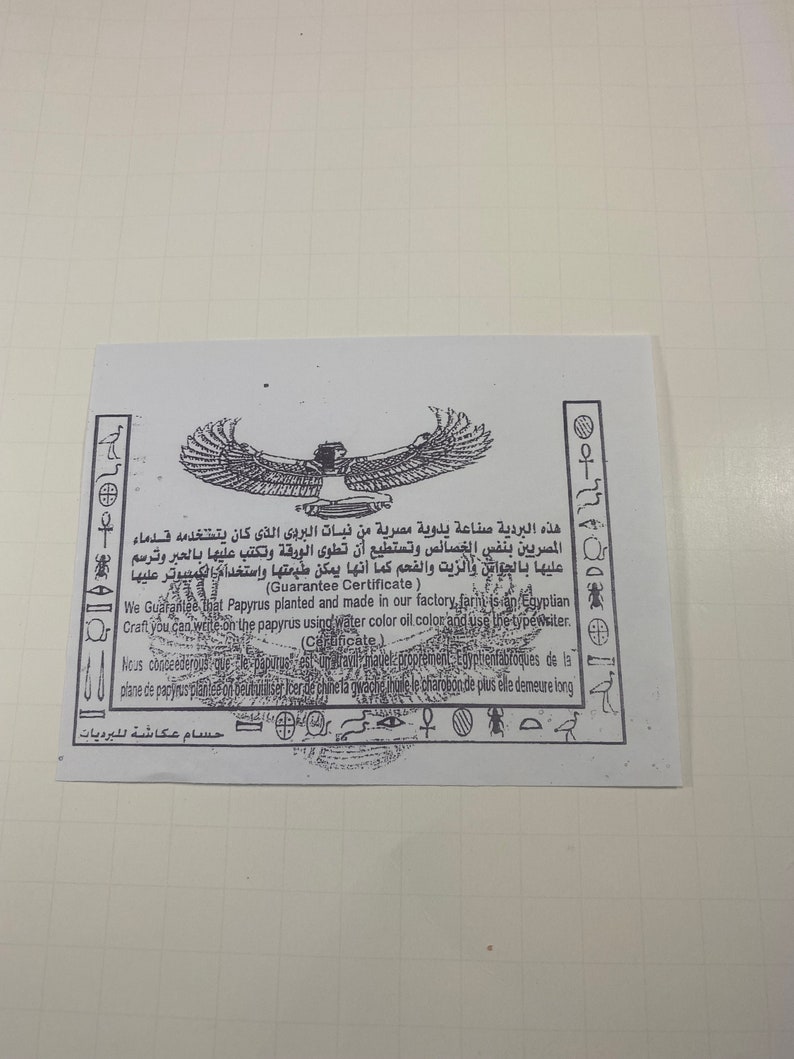 هذه البردية صناعة يدوية مصرية من نبات البردى الذى كان يستخدمه قدماء
المصريين بنفس الخصائص وتستطيع أن تطوى الورقة وتكتب عليها بالحبر وترسم
عليها بالجواش والزيت والفحم كما أنها يمكن طباعتها وإستخدام الكمبيوتر عليها
(Guarantee Certificate )
We Guarantee that Papyrus planted and made in our factory farm is an Egyptian
Craft you can write on the papyrus using water color oil color and use the typewriter.
(Certificate )
Nous concederous que "le papurus" est un travil mauel proprement Egyptienfabroques de la
plane de papyrus plantee on peututiliser lcer de chine la gwache lhuile le charobon de plus elle demeure long
حسام عكاشة للبرديات